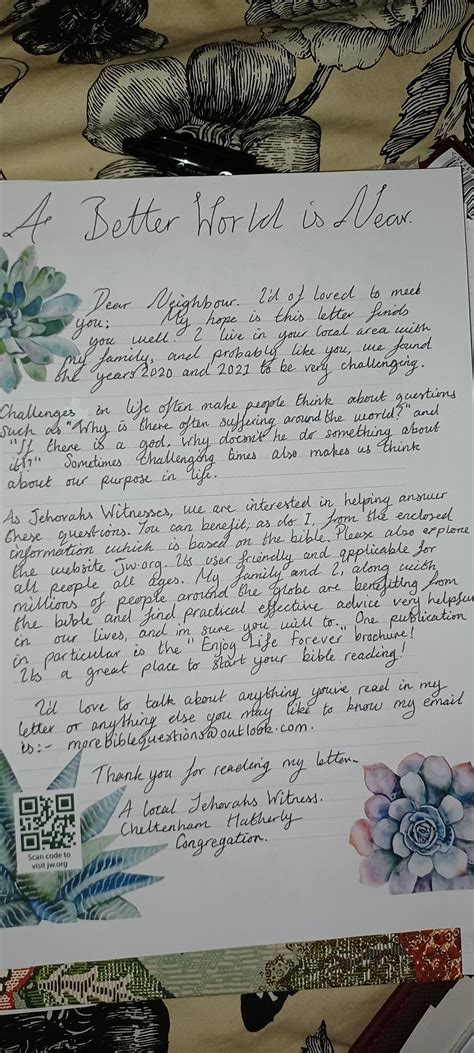 A Better World is Near.
Dear Neighbour. I'd of loved to meet
you; My hope is this letter finds
you well. I live in your local area with
my family, and probably like you, we found
the years 2020 and 2021 to be very challenging.
Challenges in life often make people think about questions
such as "Why is there often suffering around the world?" and
"If there is a god, why doesn't he do something about
it?" Sometimes challenging times also makes us think
about our purpose in life.
As Jehovahs Witnesses, we are interested in helping answer
these questions. You can benefit, as do I, from the enclosed
information which is based on the bible. Please also explore
the website Jw.org. Its user friendly and applicable for
all people all ages. My family and I, along with
millions of people around the globe are benefiting from
the bible and find practical effective advice very helpful
in our lives, and im sure you will to." One publication
in particular is the "Enjoy Life Forever" brochure!
Its a great place to start your bible reading!
I'd love to talk about anything you've read in my
letter or anything else you may like to know my email
is:- morebiblequestions@outlook.com.
Thank you for reading my letter-
A local Jehovahs Witness.
Cheltenham Hatherly
Congregation.
Scan code to
visit jw.org